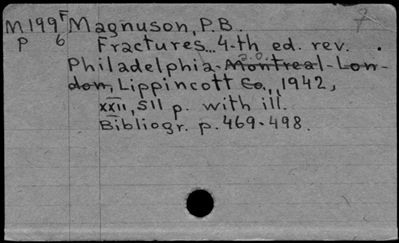 7
M199F Magnuson, P.B.
p 6 Fractures... 4-th ed. rev.
Philadelphia-Montreal-Lon-
don, Lippincott Co., 1942,
xxii, 511 p. with ill.
Bibliogr. p. 469-498.